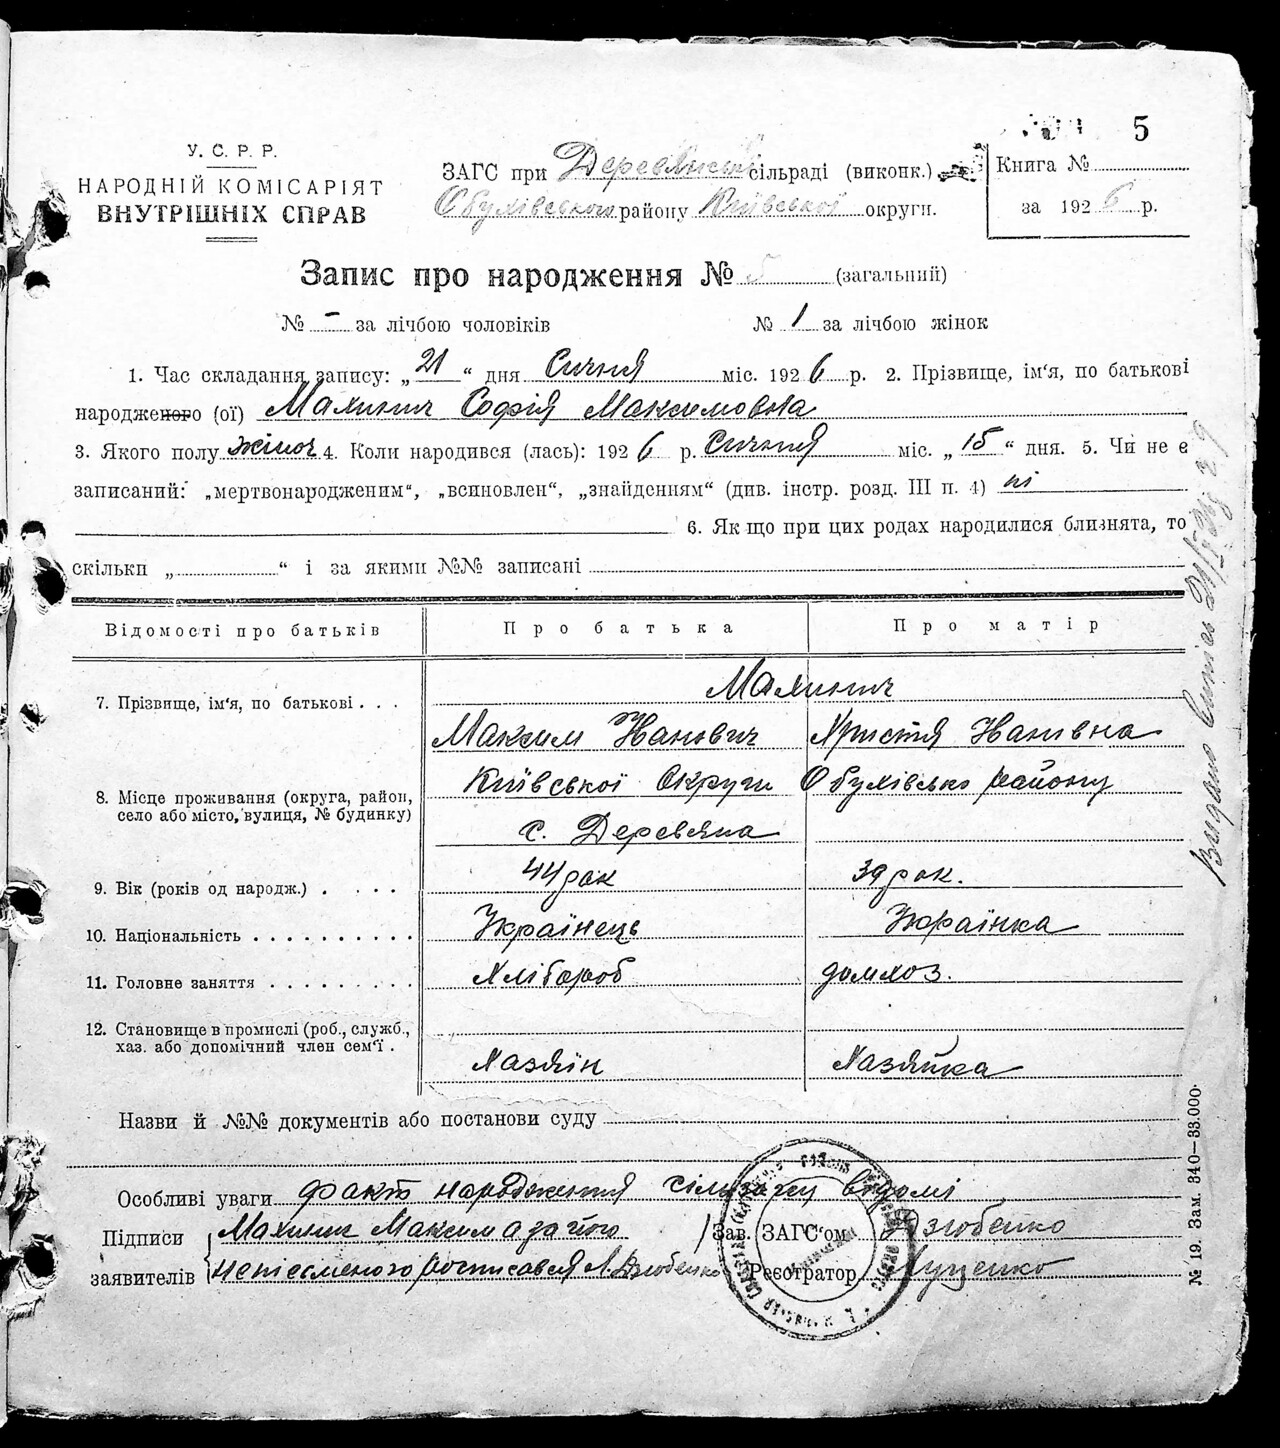 5
У. С. Р. Р.
НАРОДНІЙ КОМІСАРІЯТ
ВНУТРІШНІХ СПРАВ
ЗАГС при Деревянськ сільраді (виконк.)
Обухівського району Київської округи.
Книга №
за 1926 р.
Запис про народження № 5 (загальний)
№ - за лічбою чоловіків № 1 за лічбою жінок
1. Час складання запису: „21“ дня Січня міс. 1926 р. 2. Прізвище, ім'я, по батькові
народженого (ої) Махинич Софія Максимовна
3. Якого полу жіноч 4. Коли народився (лась): 1926 р. Січня міс. „15“ дня. 5. Чи не є
записаний: „мертвонародженим“, „всиновлен“, „знайденням“ (див. інстр. розд. III п. 4) ні
6. Якщо при цих родах народилися близнята, то
скільки „ “ і за якими №№ записані
Відомості про батьків Про батька Про матір
7. Прізвище, ім'я, по батькові . . . Махинич
Максим Іванович Христя Іванівна
8. Місце проживання (округа, район, село або місто, вулиця, № будинку) Київської Округи Обухівсько району
с. Деревяна
9. Вік (років од народж.) . . . . 44 рок 39 рок.
10. Національність . . . . . . . . . . Українець Українка
11. Головне заняття . . . . . . . . . Хлібороб домхоз.
12. Становище в промислі (роб., служб.,
хаз. або допомічний член сем'ї . Хазяїн Хазяйка
Назви й №№ документів або постанови суду
Особливі уваги факт народження сільраду відомі
Підписи Махинич Максим а за його Зав. ЗАГС'ом Дзюбенко
заявителів неписьменого росписався Л. Дзюбенко Реєстратор Луценко
Видано
№ 19. Зам. 340—33.000.